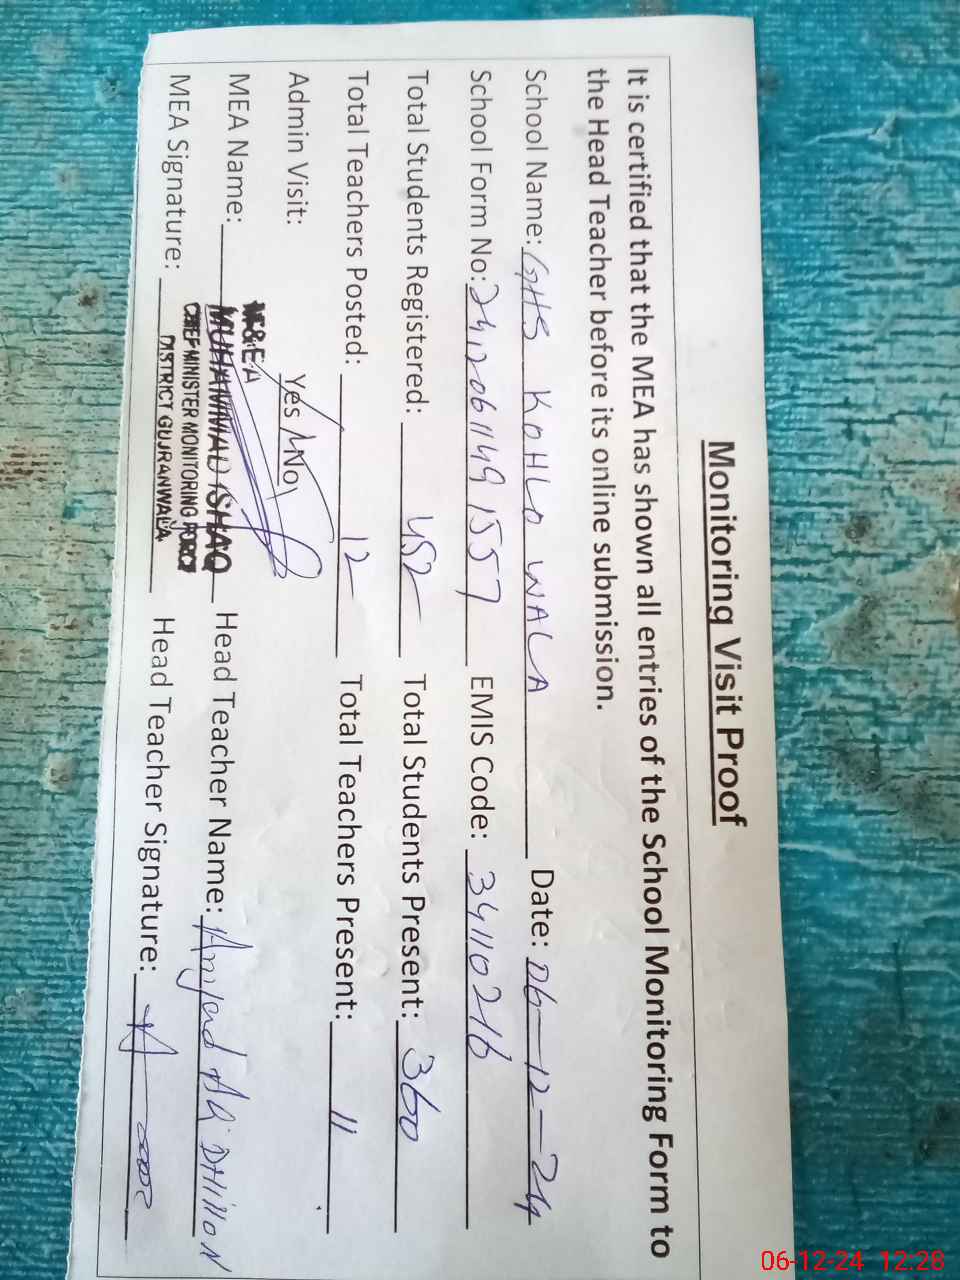 Monitoring Visit Proof
It is certified that the MEA has shown all entries of the School Monitoring Form to
the Head Teacher before its online submission.
School Name: GHS KOHLO WALA Date: 06-12-24
School Form No: 2412061149 1557 EMIS Code: 34110216
Total Students Registered: 452 Total Students Present: 360
Total Teachers Posted: 12 Total Teachers Present: 11
Admin Visit: Yes / No
M&EA
MEA Name: MUHAMMAD ISHAQ Head Teacher Name: Amjad Ali DHILLON
CHIEF MINISTER MONITORING FORCE
MEA Signature: DISTRICT GUJRANWALA Head Teacher Signature:
06-12-24 12:28